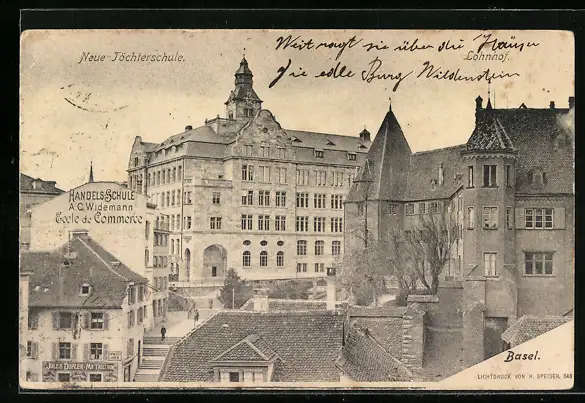 Neue Töchterschule.
Weit ragt sie über die Häuser
Die edle Burg Wildenstein
Lohnhof.
HANDELSSCHULE
A.C. WIDEMANN
Ecole de Commerce
Basel.
LICHTDRUCK VON H. SPEISER, BAS